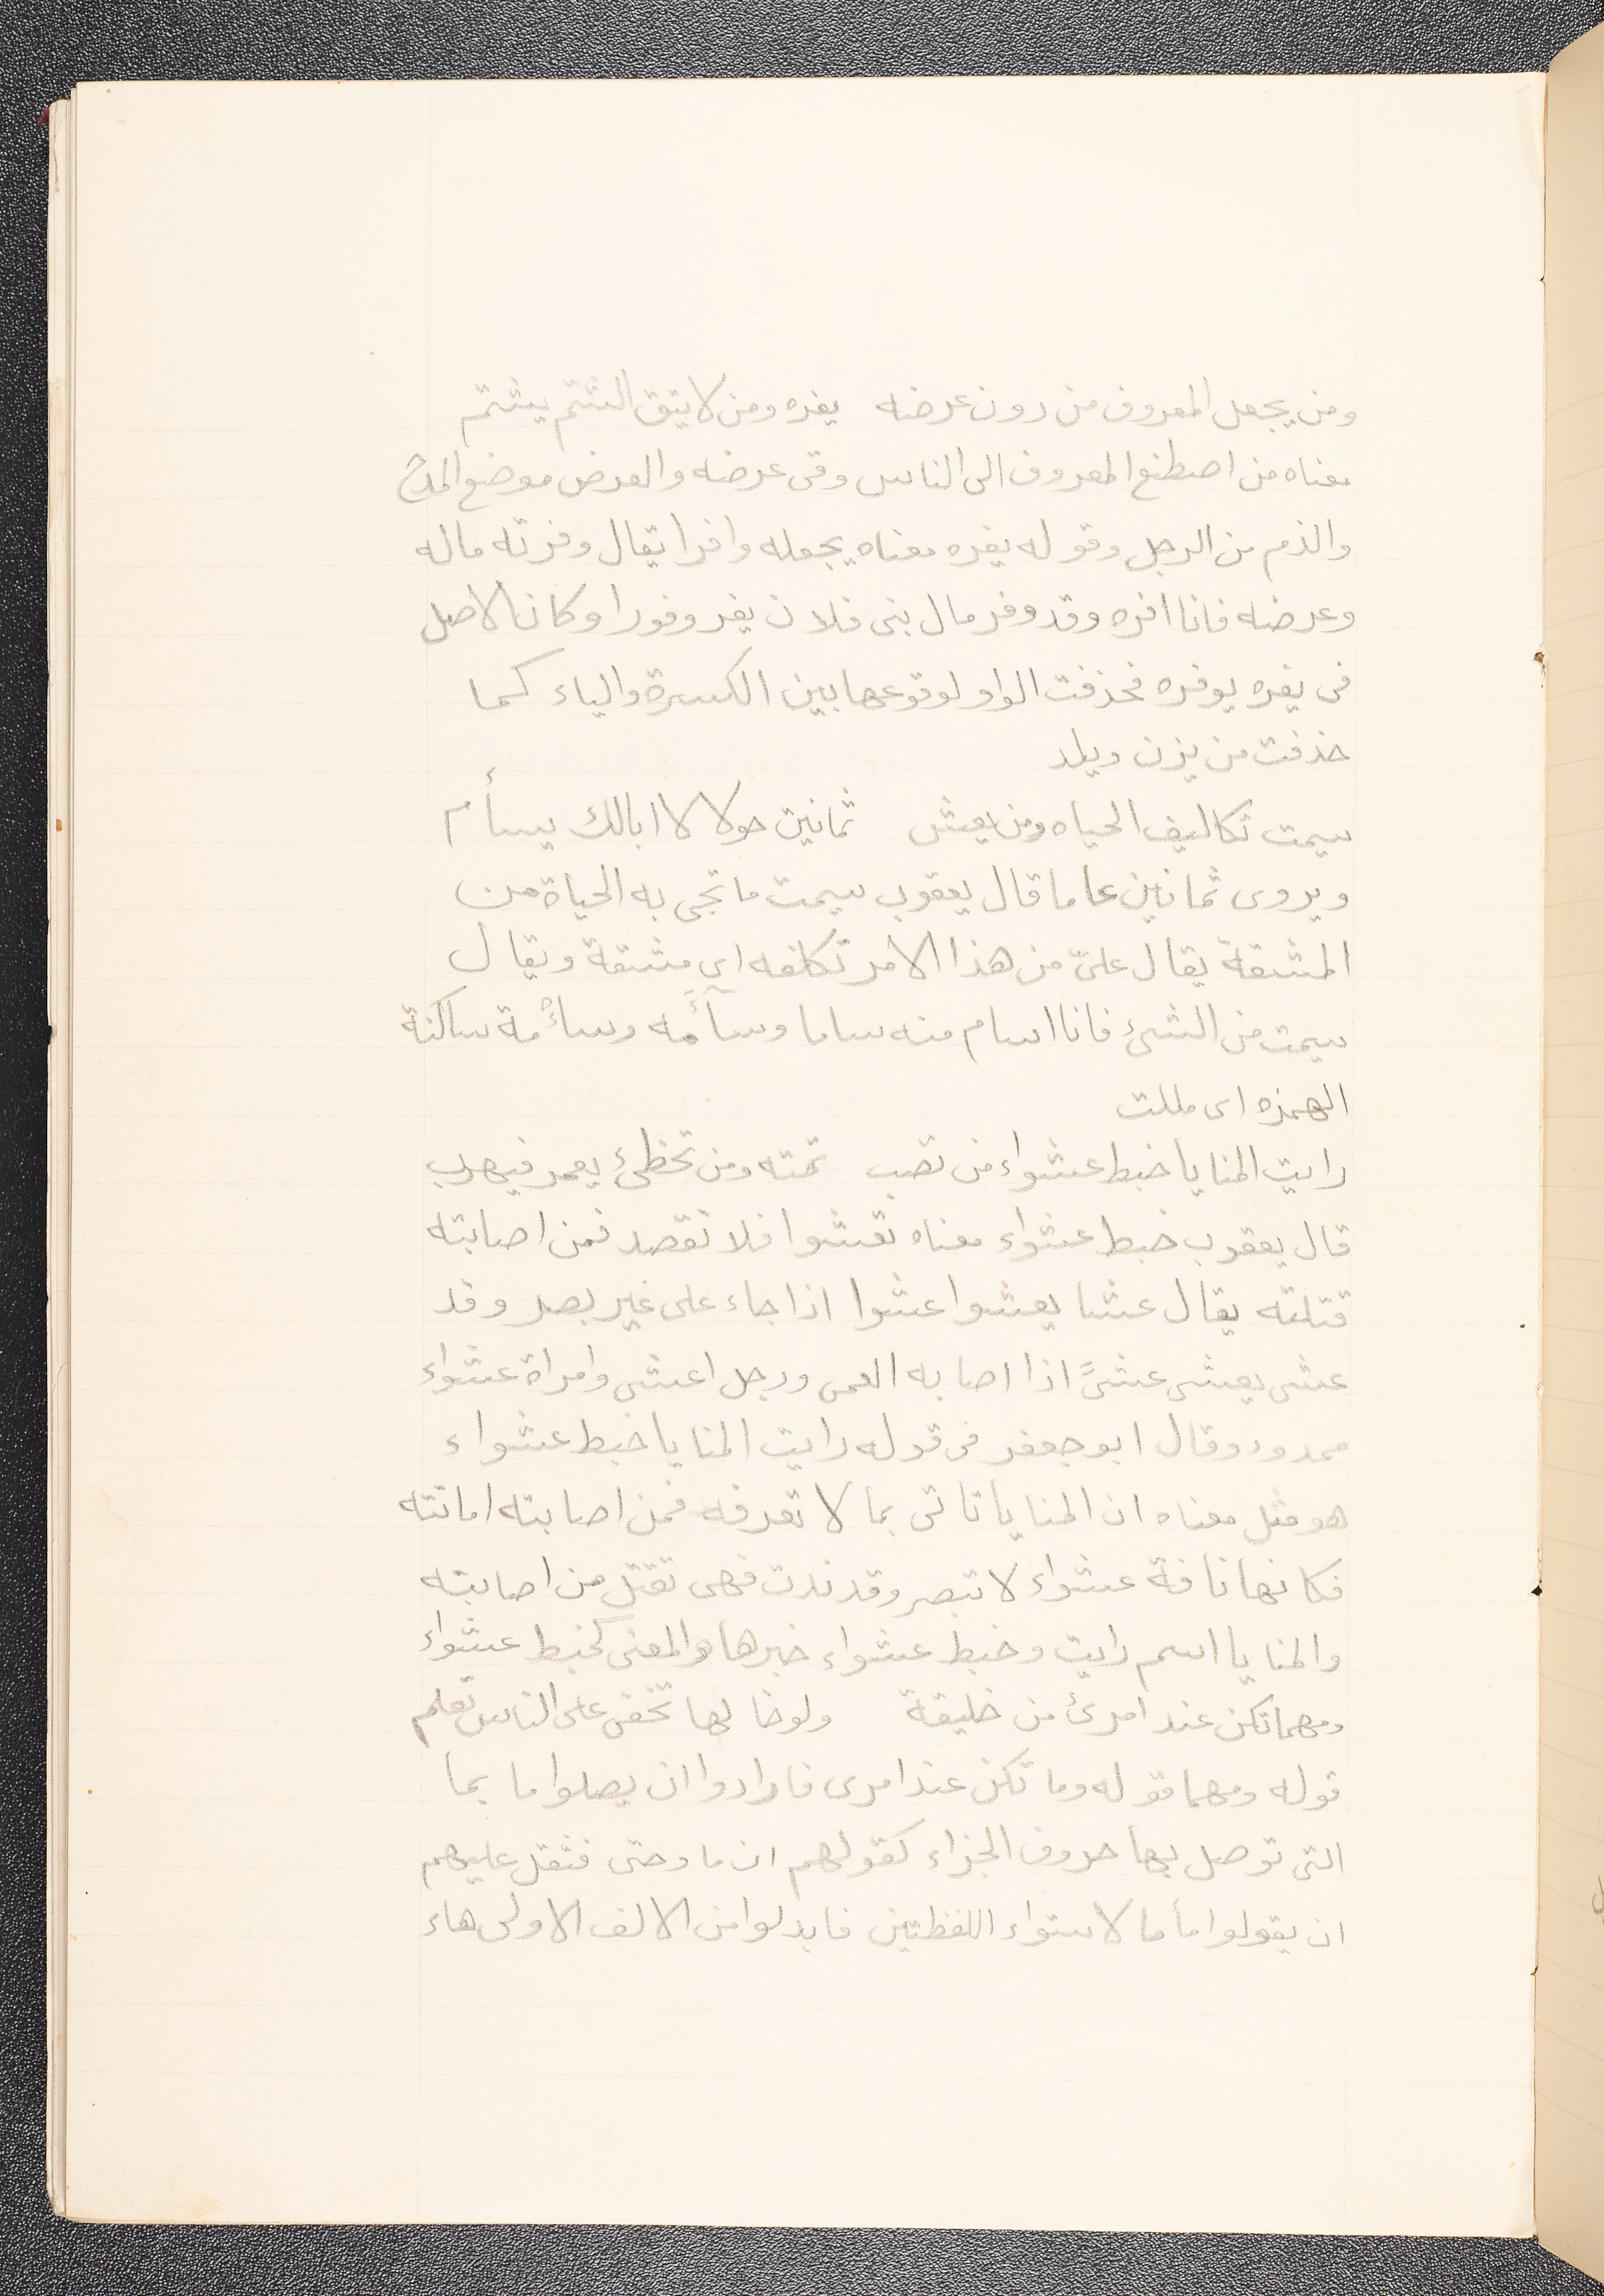 ومن يجعل المعروف من دون عرضه يفره ومن لا يتق الشتم يشتم
معناه من اصطنع المعروف الى الناس وقى عرضه والعرض موضع المدح
والذم من الرجل وقوله يفره معناه يجعله وافرا يقال وفرته ماله
وعرضه فانا افره وقد وفر مال بنى فلان يفر وفورا وكان الاصل
فى يفره يوفره فحذفت الواو لوقوعها بين الكسرة والياء كما
حذفت من يزن ويلد
سيمت تكاليف الحياه ومن يعش ثمانين حولا لا ابالك يسأم
ويروى ثمانين عاما قال يعقوب سيمت ما تجى به الحياة من
المشقة يقال علىّ من هذا الامر تكلفه اى مشقة ويقال
سيمت من الشىء فانا اسام منه ساما وسآمه وسأْمة ساكنة
الهمزه اى مللت
رايت المنايا خبط عشواء من تصب تمته ومن تخطىء يعمر فيهرب
قال يعقوب خبط عشواء معناه تعشوا فلا تقصد فمن اصابته
قتلته يقال عشا يعشوا عشوا اذا جاء على غير بصر وقد
عشى يعشى عشىً اذا اصابه العمى ورجل اعشى وامراة عشواء
ممدود وقال ابو جعفر فى قوله رايت المنايا خبط عشواء
هو مثل معناه ان المنايا تاتى بما لا تعرفه فمن اصابته اماتته
فكانها ناقة عشواء لا تبصر وقد ندت فهى تقتل من اصابته
والمنايا اسم رايت وخبط عشواء خبرها والمعنى كخبط عشواء
ومهما تكن عند امرئ من خليقة ولو خالها تخفى على الناس تعلم
قوله ومهما قوله وما تكن عند امرى فارادوا ان يصلوا ما بما
التى توصل بها حروف الجزاء كقولهم ان ما وحتى فثقل عليهم
ان يقولوا ماما لاستواء اللفظتين فابدلوا من الالف الاولى هاء